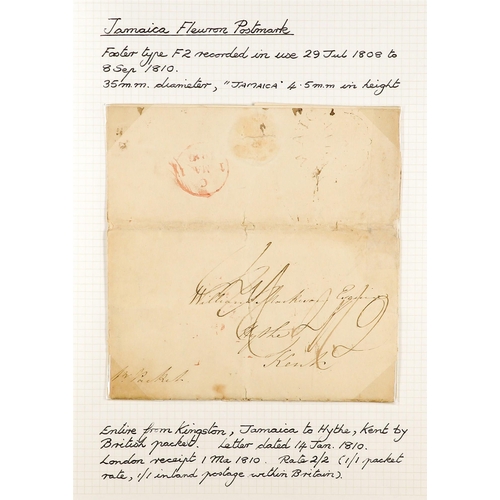 Jamaica Fleuron Postmark
Foster type F2 recorded in use 29 Jul 1808 to
8 Sep 1810.
35m.m. diameter, "JAMAICA" 4.5m.m in height
William
Hythe
Kent.
Packet.
Entire from Kingston, Jamaica to Hythe, Kent by
British packet. Letter dated 14 Jan. 1810.
London receipt 1 Ma 1810. Rate 2/2 (1/1 packet
rate, 1/1 inland postage within Britain).